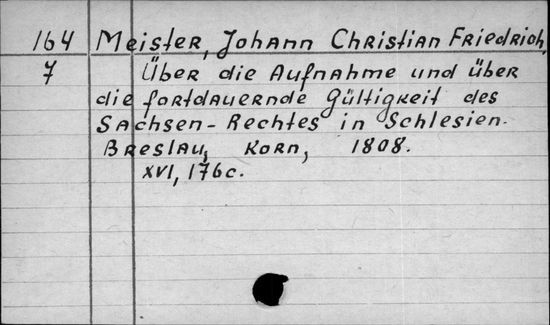 164 Meister, Johann Christian Friedrich,
7 Über die Aufnahme und über
die fortdauernde Gültigkeit des
Sachsen-Rechtes in Schlesien.
Breslau, Korn, 1808.
XVI, 176c.